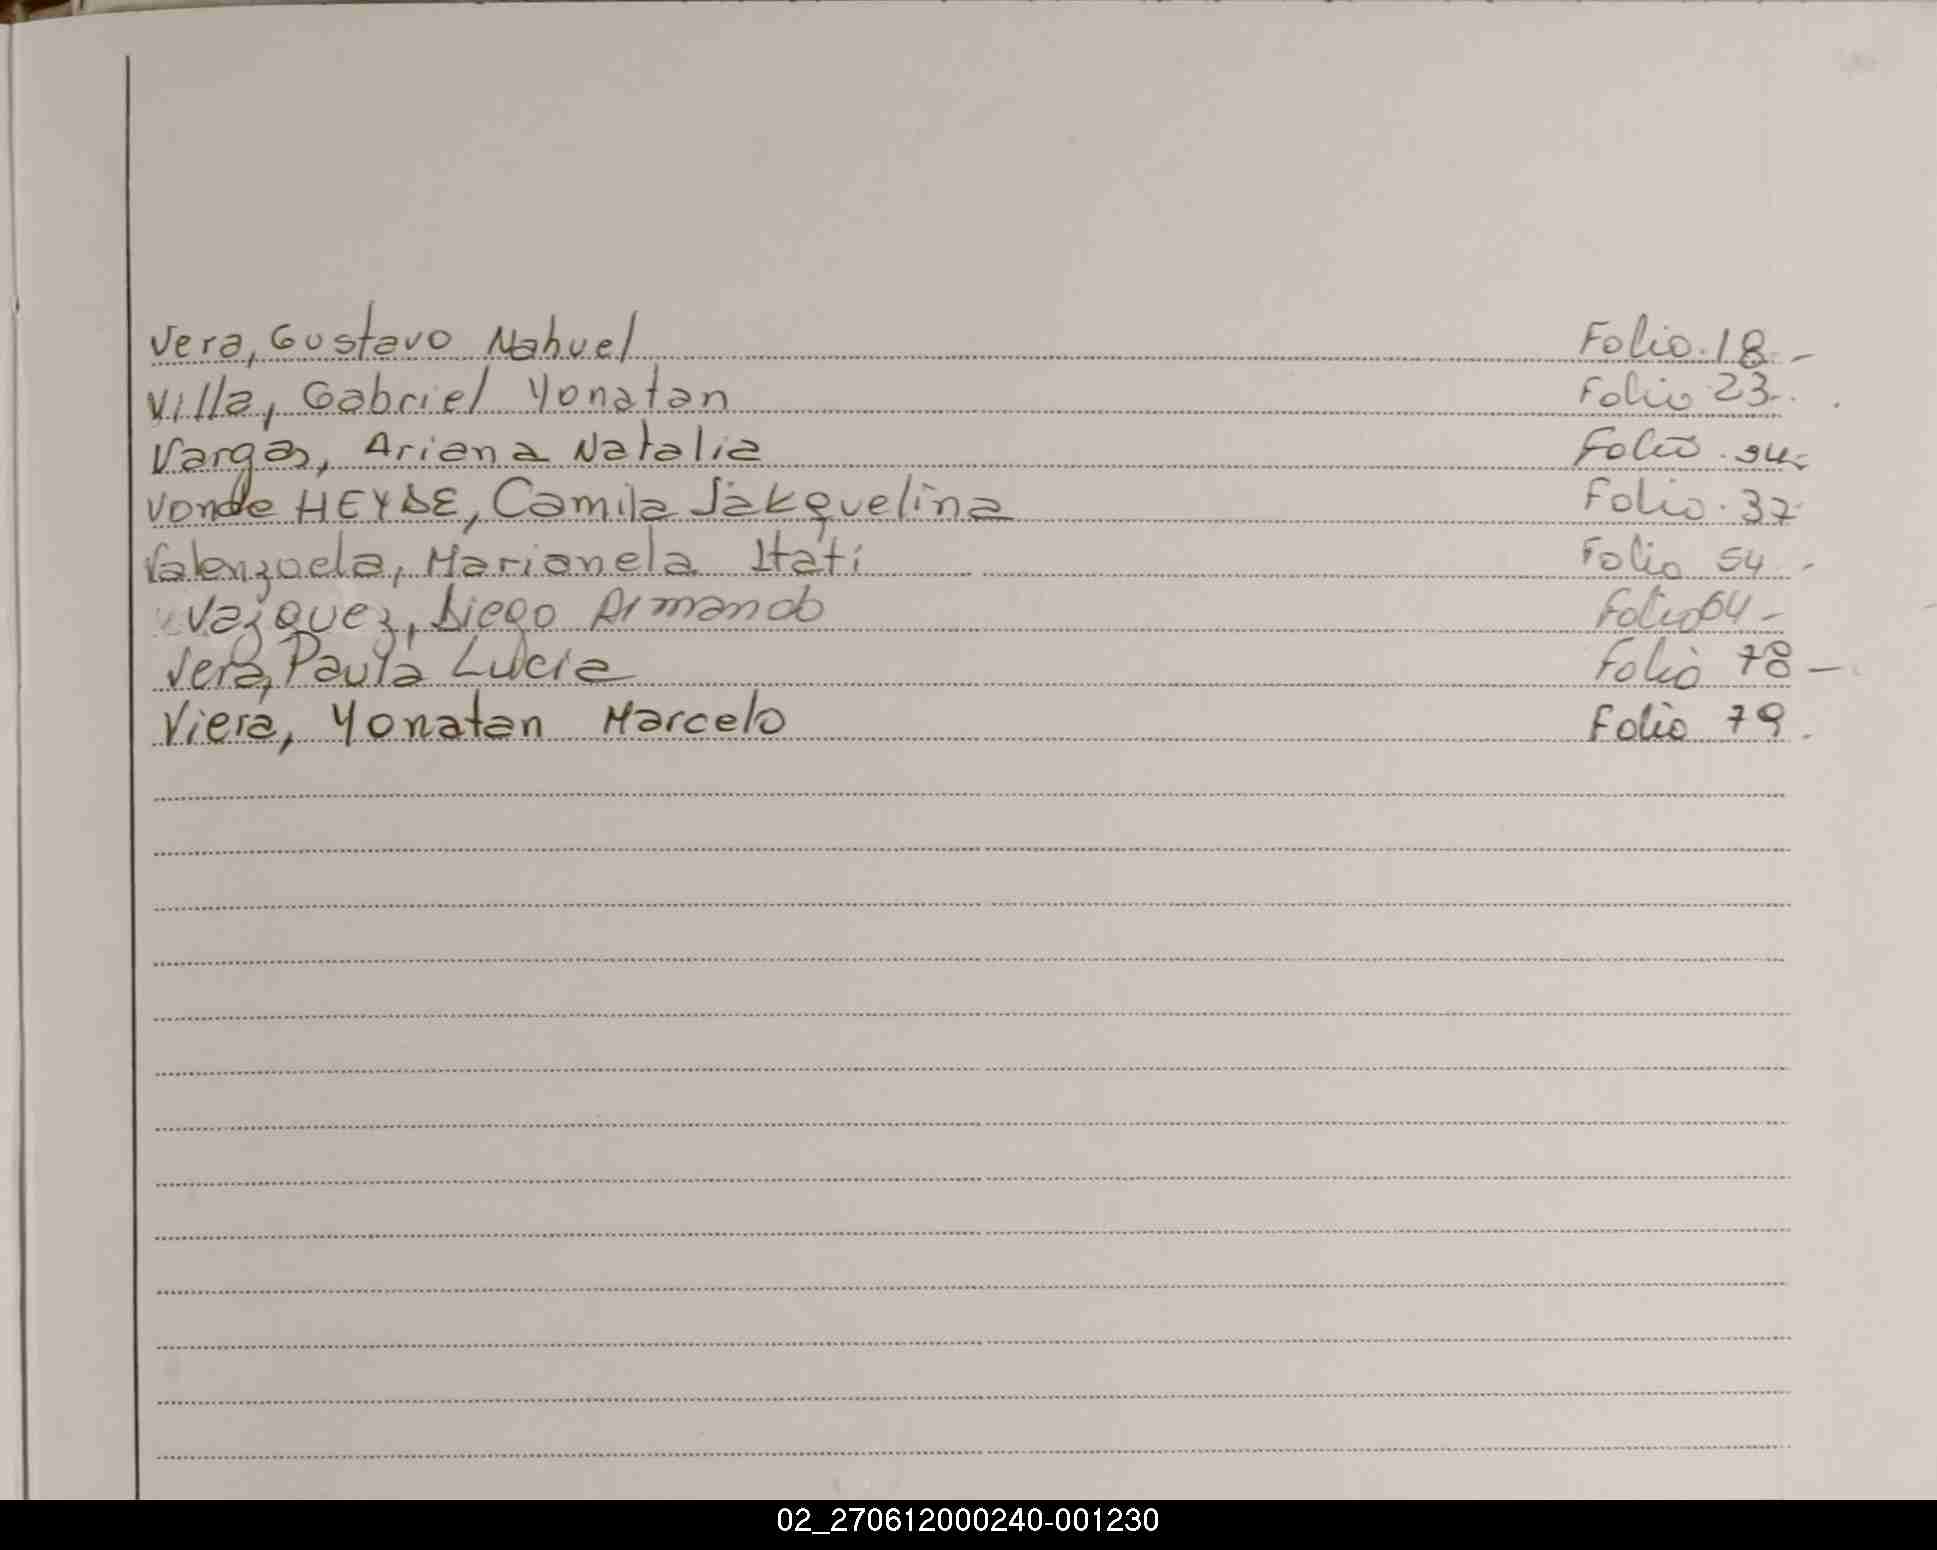 Vera, Gustavo Nahuel Folio 18 -
Villa, Gabriel Yonatan Folio 23.
Vargas, Ariana Natalia Folio 34-
Vonde HEYDE, Camila Jakquelina Folio 37
Valenzuela, Marianela Itati Folio 54 -
Vazquez, Diego Armando Folio 64 -
Vera, Paula Lucia Folio 78 -
Viera, Yonatan Marcelo Folio 79.
02_270612000240-001230